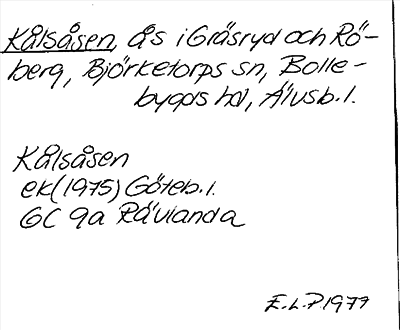 Kålsåsen, ås i Gräsryd och Rö-
berg, Björketorps sn, Bolle-
bygds hd, Älvsb.l.
Kålsåsen
ek (1975) Göteb.l.
GC 9a Rävlanda
E.L.P 1977